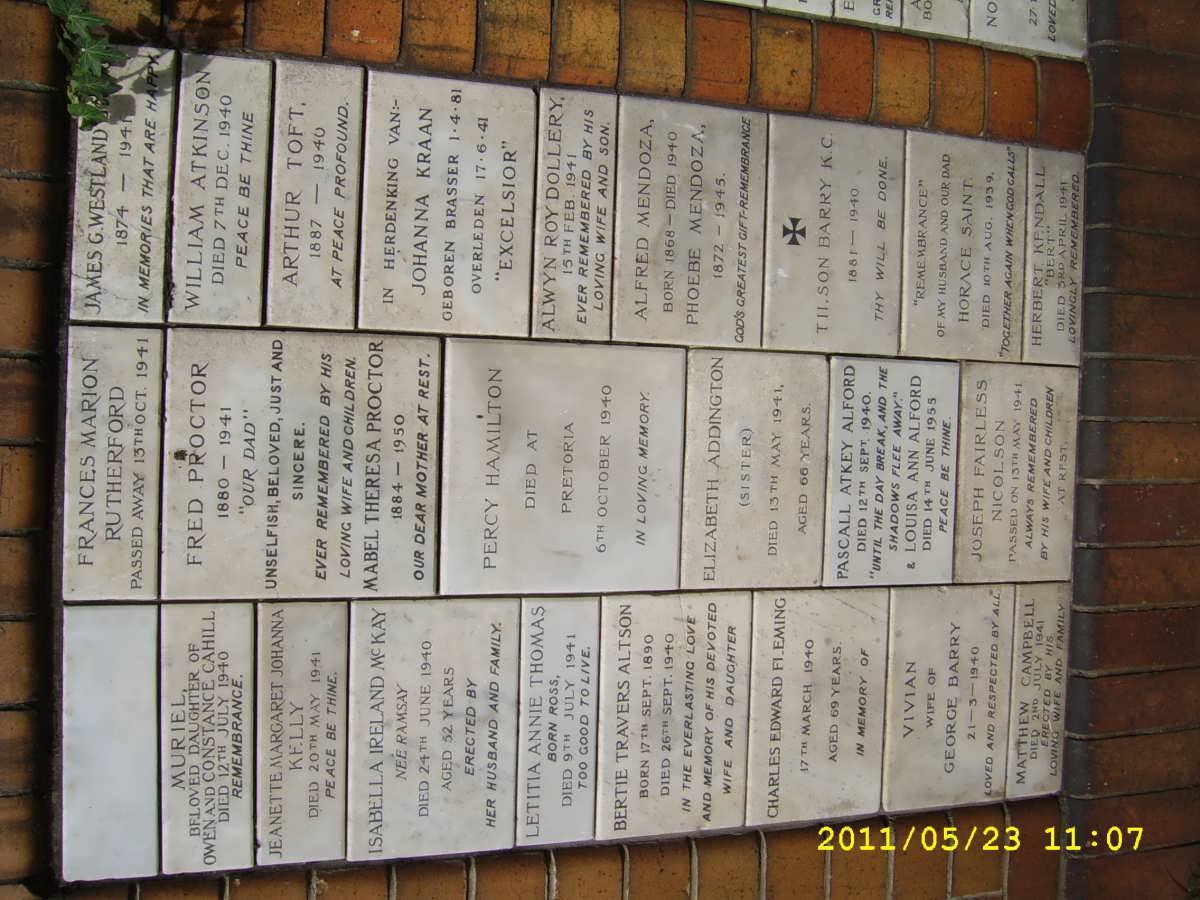 MURIEL,
BELOVED DAUGHTER OF
OWEN AND CONSTANCE CAHILL
DIED 12TH JULY 1940
REMEMBRANCE.
JEANETTE MARGARET JOHANNA
KELLY
DIED 20TH MAY 1941
PEACE BE THINE.
ISABELLA IRELAND McKAY
NÉE RAMSAY
DIED 24TH JUNE 1940
AGED 52 YEARS
ERECTED BY
HER HUSBAND AND FAMILY.
LETITIA ANNIE THOMAS
BORN ROSS,
DIED 9TH JULY 1941
TOO GOOD TO LIVE.
BERTIE TRAVERS ALTSON
BORN 17TH SEPT. 1890
DIED 26TH SEPT. 1940
IN THE EVERLASTING LOVE
AND MEMORY OF HIS DEVOTED
WIFE AND DAUGHTER
CHARLES EDWARD FLEMING
17TH MARCH 1940
AGED 69 YEARS.
IN MEMORY OF
VIVIAN
WIFE OF
GEORGE BARRY
21-3-1940
LOVED AND RESPECTED BY ALL
MATTHEW CAMPBELL
DIED 2ND JULY 1941
ERECTED BY HIS
LOVING WIFE AND FAMILY
FRANCES MARION
RUTHERFORD
PASSED AWAY 13TH OCT. 1941
FRED PROCTOR
1880 - 1941
"OUR DAD"
UNSELFISH, BELOVED, JUST AND
SINCERE.
EVER REMEMBERED BY HIS
LOVING WIFE AND CHILDREN.
MABEL THERESA PROCTOR
1884 - 1950
OUR DEAR MOTHER AT REST.
PERCY HAMILTON
DIED AT
PRETORIA
6TH OCTOBER 1940
IN LOVING MEMORY.
ELIZABETH ADDINGTON
(SISTER)
DIED 13TH MAY 1941,
AGED 66 YEARS.
PASCALL ATKEY ALFORD
DIED 12TH SEPT. 1940.
"UNTIL THE DAY BREAK, AND THE
SHADOWS FLEE AWAY."
& LOUISA ANN ALFORD
DIED 14TH JUNE 1955
PEACE BE THINE.
JOSEPH FAIRLESS
NICOLSON
PASSED ON 13TH MAY 1941
ALWAYS REMEMBERED
BY HIS WIFE AND CHILDREN
AT REST.
JAMES G. WESTLAND
1874 — 1941
IN MEMORIES THAT ARE HAPPY
WILLIAM ATKINSON
DIED 7TH DEC. 1940
PEACE BE THINE
ARTHUR TOFT.
1887 — 1940
AT PEACE PROFOUND.
IN HERDENKING VAN:-
JOHANNA KRAAN
GEBOREN BRASSER 1·4·81
OVERLEDEN 17·6·41
"EXCELSIOR"
ALWYN ROY DOLLERY,
13TH FEB. 1941
EVER REMEMBERED BY HIS
LOVING WIFE AND SON.
ALFRED MENDOZA,
BORN 1868 - DIED 1940
PHOEBE MENDOZA,
1872 - 1945.
GOD'S GREATEST GIFT-REMEMBRANCE
TILSON BARRY K.C.
1881 - 1940
THY WILL BE DONE.
"REMEMBRANCE"
OF MY HUSBAND AND OUR DAD
HORACE SAINT.
DIED 10TH AUG. 1939.
"TOGETHER AGAIN WHEN GOD CALLS"
HERBERT KENDALL
"BERT"
DIED 3RD APRIL 1941
LOVINGLY REMEMBERED.
LOVED
2011/05/23 11:07